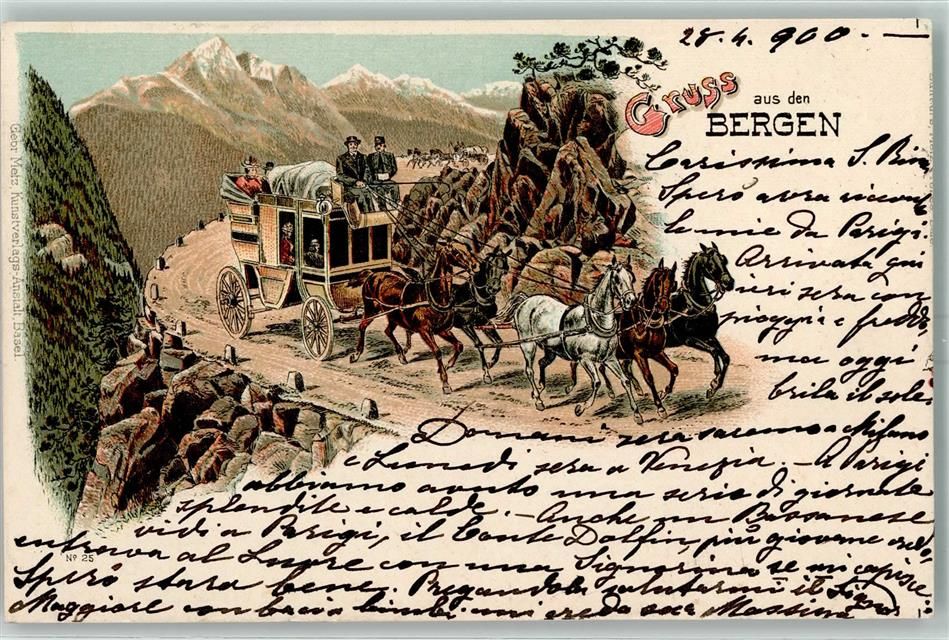 28.4.900.—
Gruss
aus den
BERGEN
Carissima S. Bice
Spero avra ricevute
le mie da Parigi.
Arrivata qui
ieri sera con
pioggia e freddo
ma oggi
brilla il sole.
Domani sera saremo a Milano
e Lunedi sera a Venezia. – A Parigi
abbiamo avuto una serie di giornate
splendite e calde. – Anche un Bassanese
vidi a Parigi, il Conte Dolfin, più giovane credo,
entrava al Luvre con una Signorina se mi capisce
Spero stara bene. Pregandola salutarmi il
Maggiore con bacio bimbi mi creda sua
Georg Metz, Kunstverlags-Anstalt, Basel.
No 25